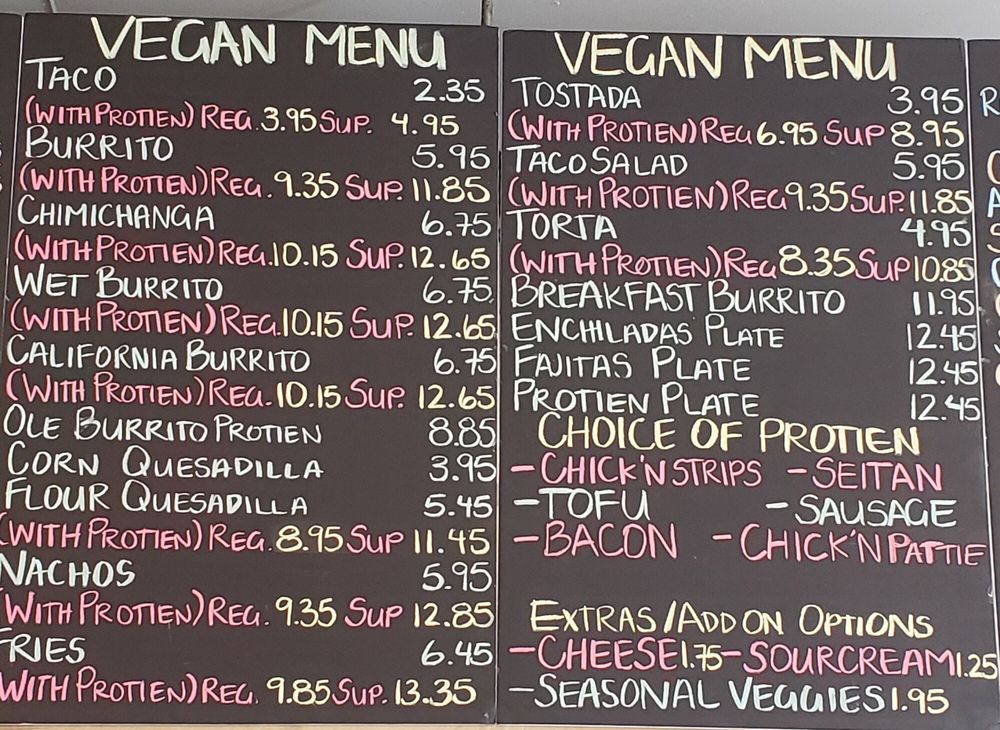 VEGAN MENU
TACO 2.35
(WITH PROTIEN) REG. 3.95 SUP. 4.95
BURRITO 5.95
(WITH PROTIEN) REG. 9.35 SUP. 11.85
CHIMICHANGA 6.75
(WITH PROTIEN) REG. 10.15 SUP. 12.65
WET BURRITO 6.75
(WITH PROTIEN) REG. 10.15 SUP. 12.65
CALIFORNIA BURRITO 6.75
(WITH PROTIEN) REG. 10.15 SUP. 12.65
OLE BURRITO PROTIEN 8.85
CORN QUESADILLA 3.95
FLOUR QUESADILLA 5.45
(WITH PROTIEN) REG. 8.95 SUP 11.45
NACHOS 5.95
(WITH PROTIEN) REG. 9.35 SUP 12.85
FRIES 6.45
WITH PROTIEN) REG. 9.85 SUP. 13.35
VEGAN MENU
TOSTADA 3.95
(WITH PROTIEN) REG 6.95 SUP 8.95
TACO SALAD 5.95
(WITH PROTIEN) REG 9.35 SUP. 11.85
TORTA 4.95
(WITH PROTIEN) REG 8.35 SUP 10.85
BREAKFAST BURRITO 11.95
ENCHILADAS PLATE 12.45
FAJITAS PLATE 12.45
PROTIEN PLATE 12.45
CHOICE OF PROTIEN
-CHICK'N STRIPS -SEITAN
-TOFU -SAUSAGE
-BACON -CHICK'N PATTIE
EXTRAS/ADD ON OPTIONS
-CHEESE 1.75 -SOURCREAM 1.25
-SEASONAL VEGGIES 1.95